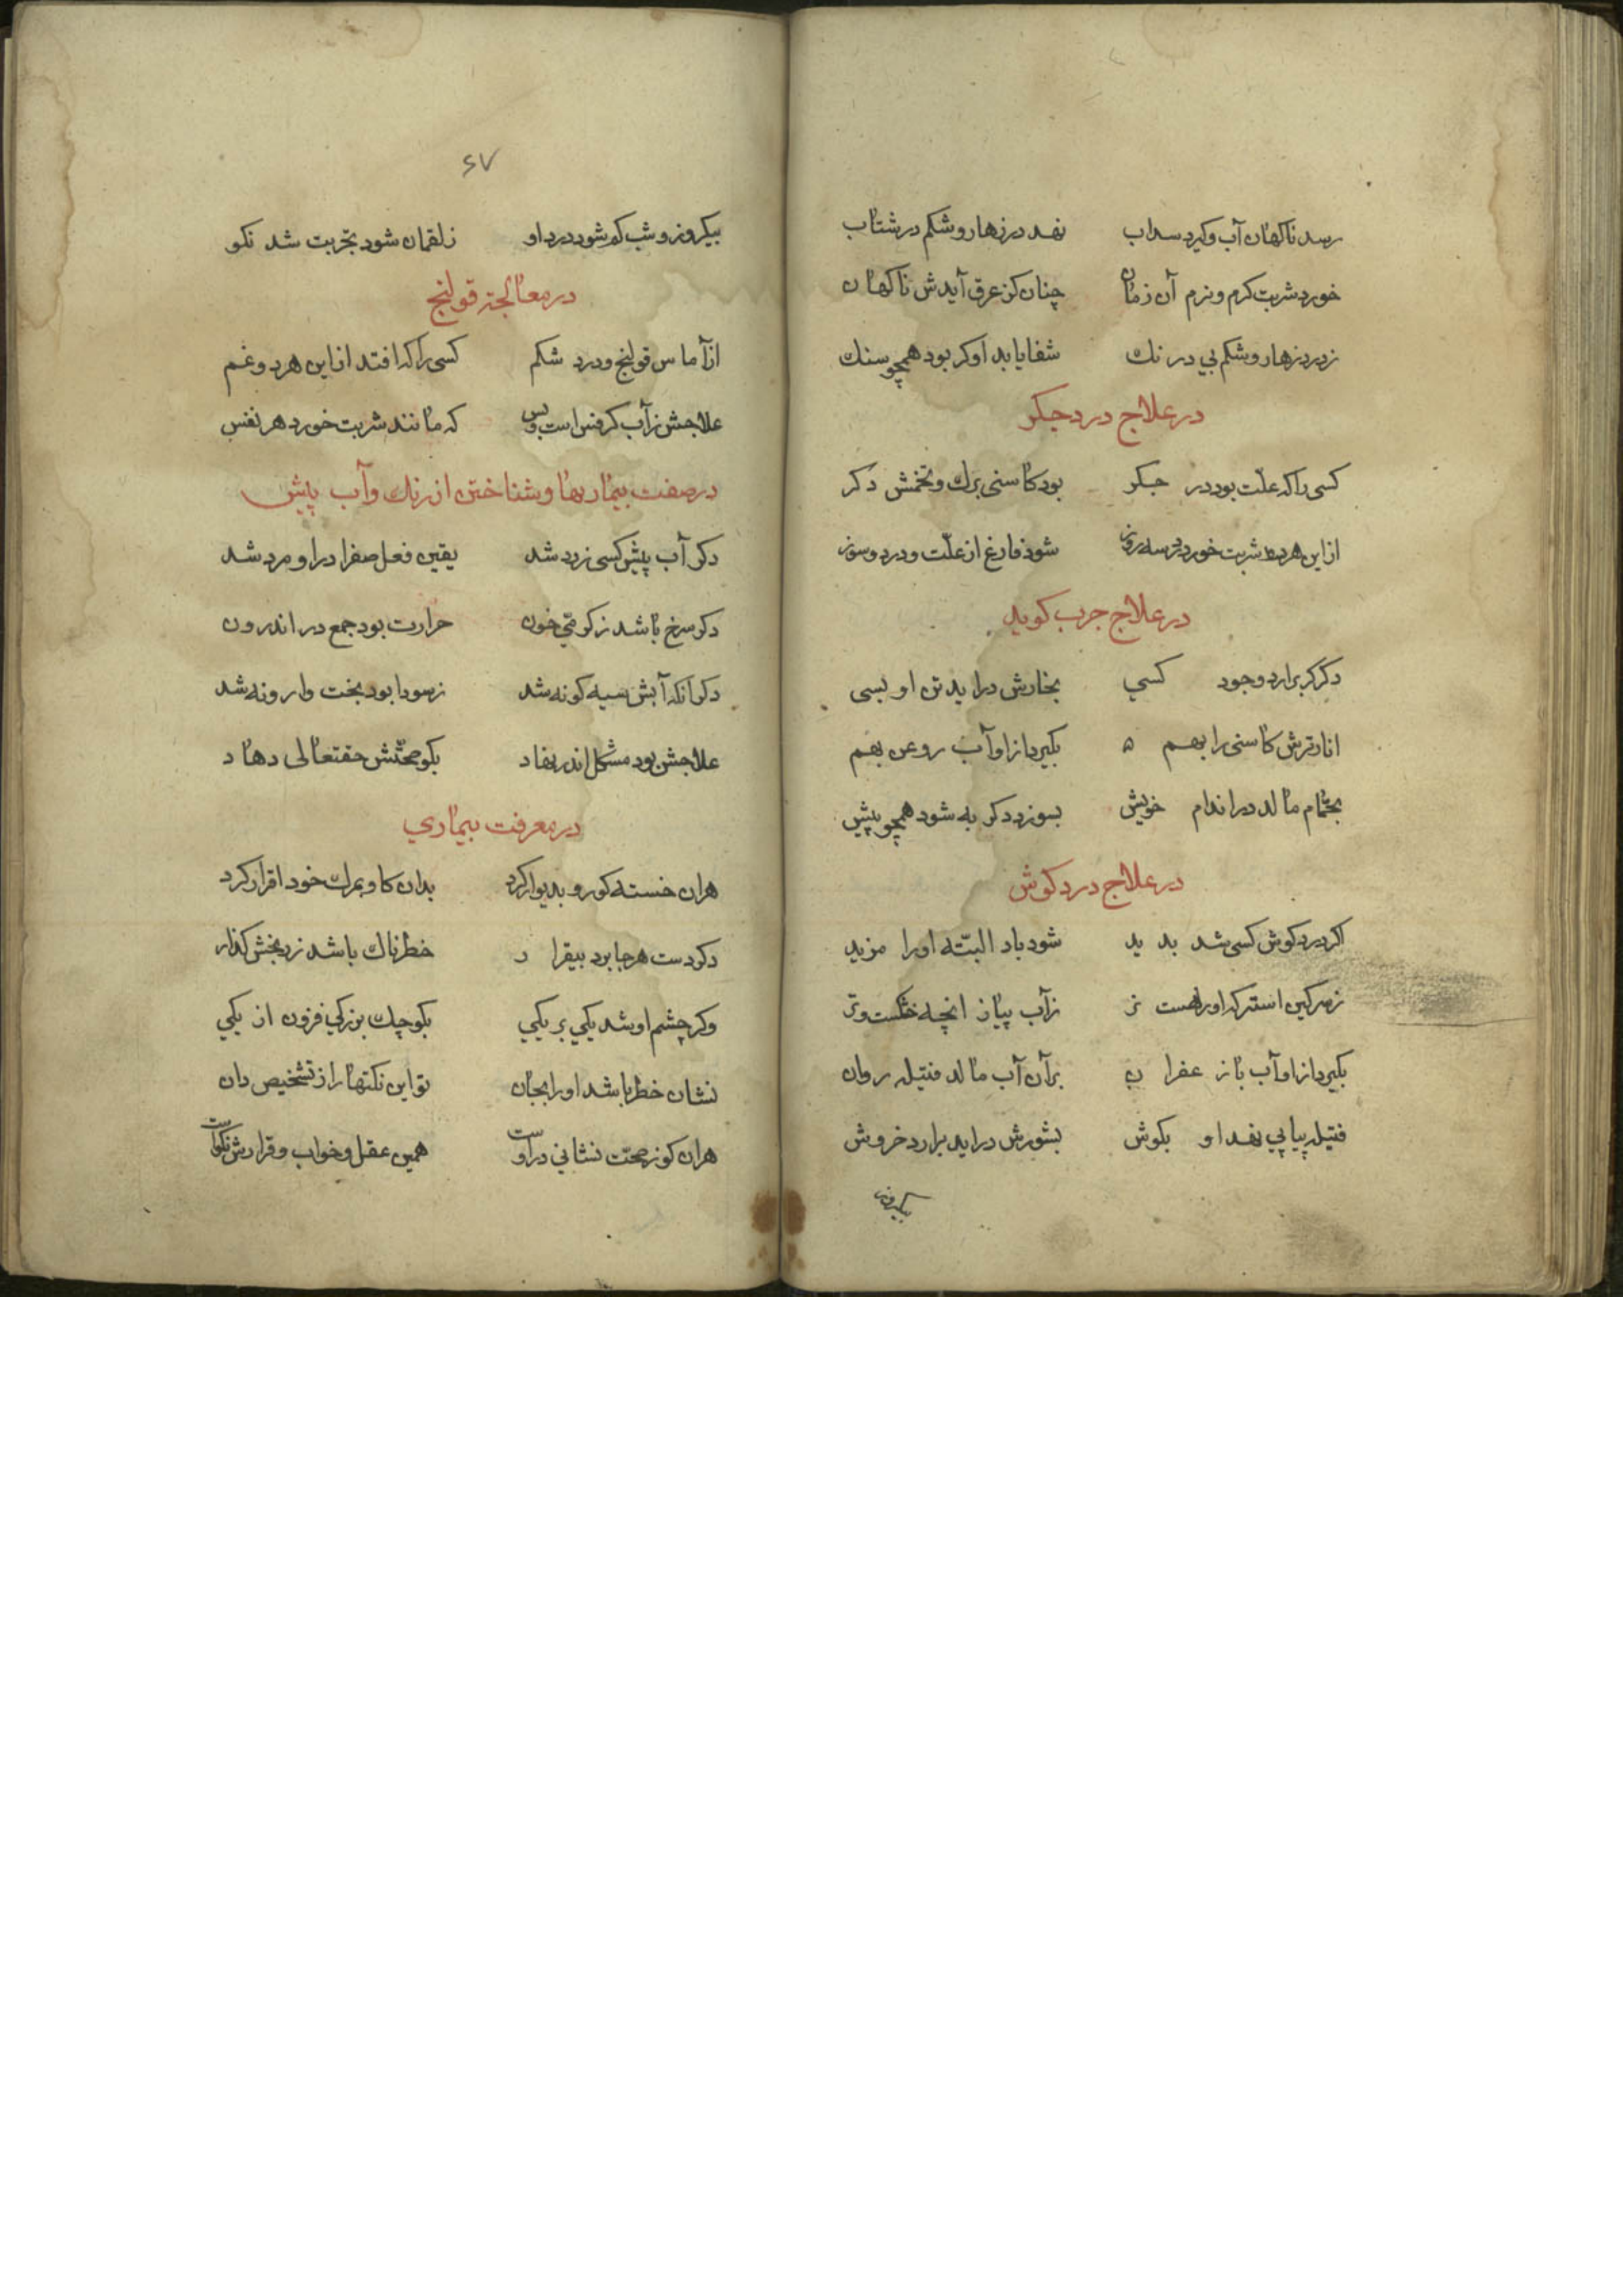 رسد ناکهان آب وکیرد سداب نهد در زهار و شکم در شتاب
خورد شربت کرم و نرم آن زمان چنان کز عرق آیدش ناکهان
ز درد زهار و شکم بی درنك شفا یابد او کر بود همچو سنك
در علاج درد جکر
کسی را که علّت بود در جکر بود کاسنی برك و تخمش دکر
از این هردو شربت خورد در سه روز شود فارغ از علّت و درد و سوز
در علاج جرب کوید
دکر کر برارد وجود کسی بخارش دراید تن او بسی
انار ترش کاسنی را بهم بکیرد از او آب روعن بهم
بحمّام مالد در اندام خویش بسوزد دکر به شود همچو پیش
در علاج درد کوش
اکر درد کوش کسی شد بدید شود باد البتّه اورا مزید
ز سرکین استر که اورا هست تر زآب پیاز انچه خشکست و تر
بکیرد از او آب باز عفران برآن آب مالد فتیله روان
فتیله پیاپی نهد او بکوش بشورش دراید برارد خروش
بیکروز
۶۷
بیکروز و شب کم شود درد او ز لقمان شود تجربت شد نکو
در معالجۀ قولنج
از آماس قولنج و درد شکم کسی را که افتد از این هردو غم
علاجش ز آب کرفس است و بس که مانند شربت خورد هر نفس
در صفت بیماریها و شناختن از رنك و آب پیش
دکر آب پیش کسی زرد شد یقین فعل صفرا در او مرد شد
دکر سرخ باشد ز کرمی خون حرارت بود جمع در اندرون
دکر آنکه آبش سیه کونه شد ز سودا بود بخت وارونه شد
علاجش بود مشکل اندر نهاد بکو صحّتش حقتعالی دهاد
در معرفت بیماری
هران خسته کو رو بدیوار کرد بدان کاو بمرك خود اقرار کرد
دکر دست هر جا برد بیقرار خطرناك باشد ز رنجش کذار
وکر چشم او شد یکی بر یکی بکوچك بزرکی فزون از یکی
نشان خطر باشد اورا بجان تو این نکتها را ز تشخیص دان
هران کو ز صحّت نشانی دراوست همین عقل و خواب و قرارش نکواست